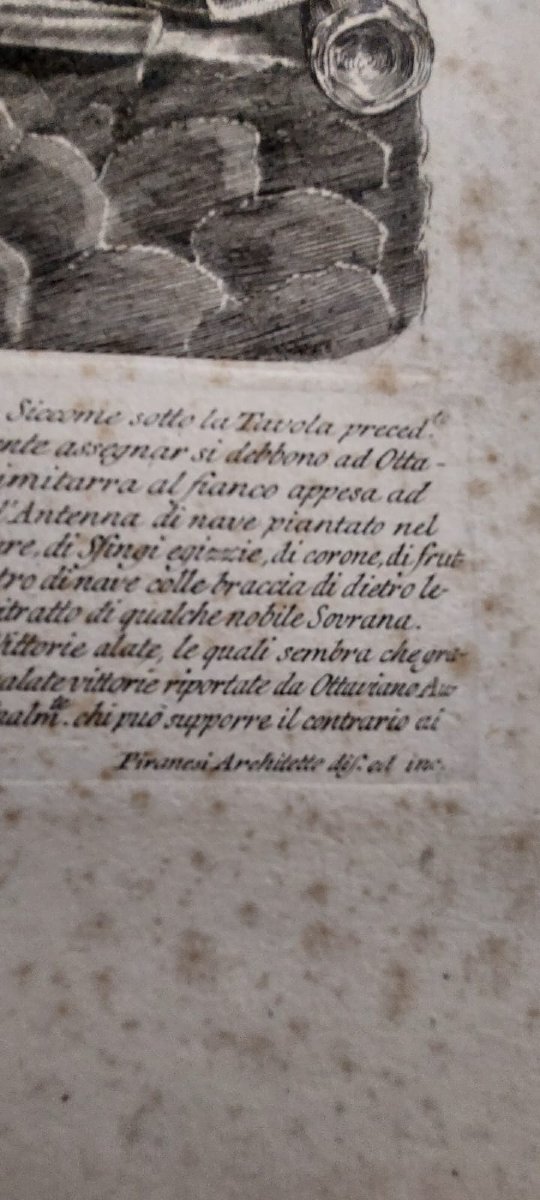 Siccome sotto la Tavola preced.te
nte assegnar si debbono ad Otta-
imitarra al fianco appesa ad
l'Antenna di nave piantato nel
re, di Sfingi egizzie, di corone, di frut
tro di nave colle braccia di dietro le-
itratto di qualche nobile Sovrana.
Vittorie alate, le quali sembra che gra-
alate vittorie riportate da Ottaviano Au
nalm.te chi può supporre il contrario ai
Piranesi Architetto dis. ed inc.